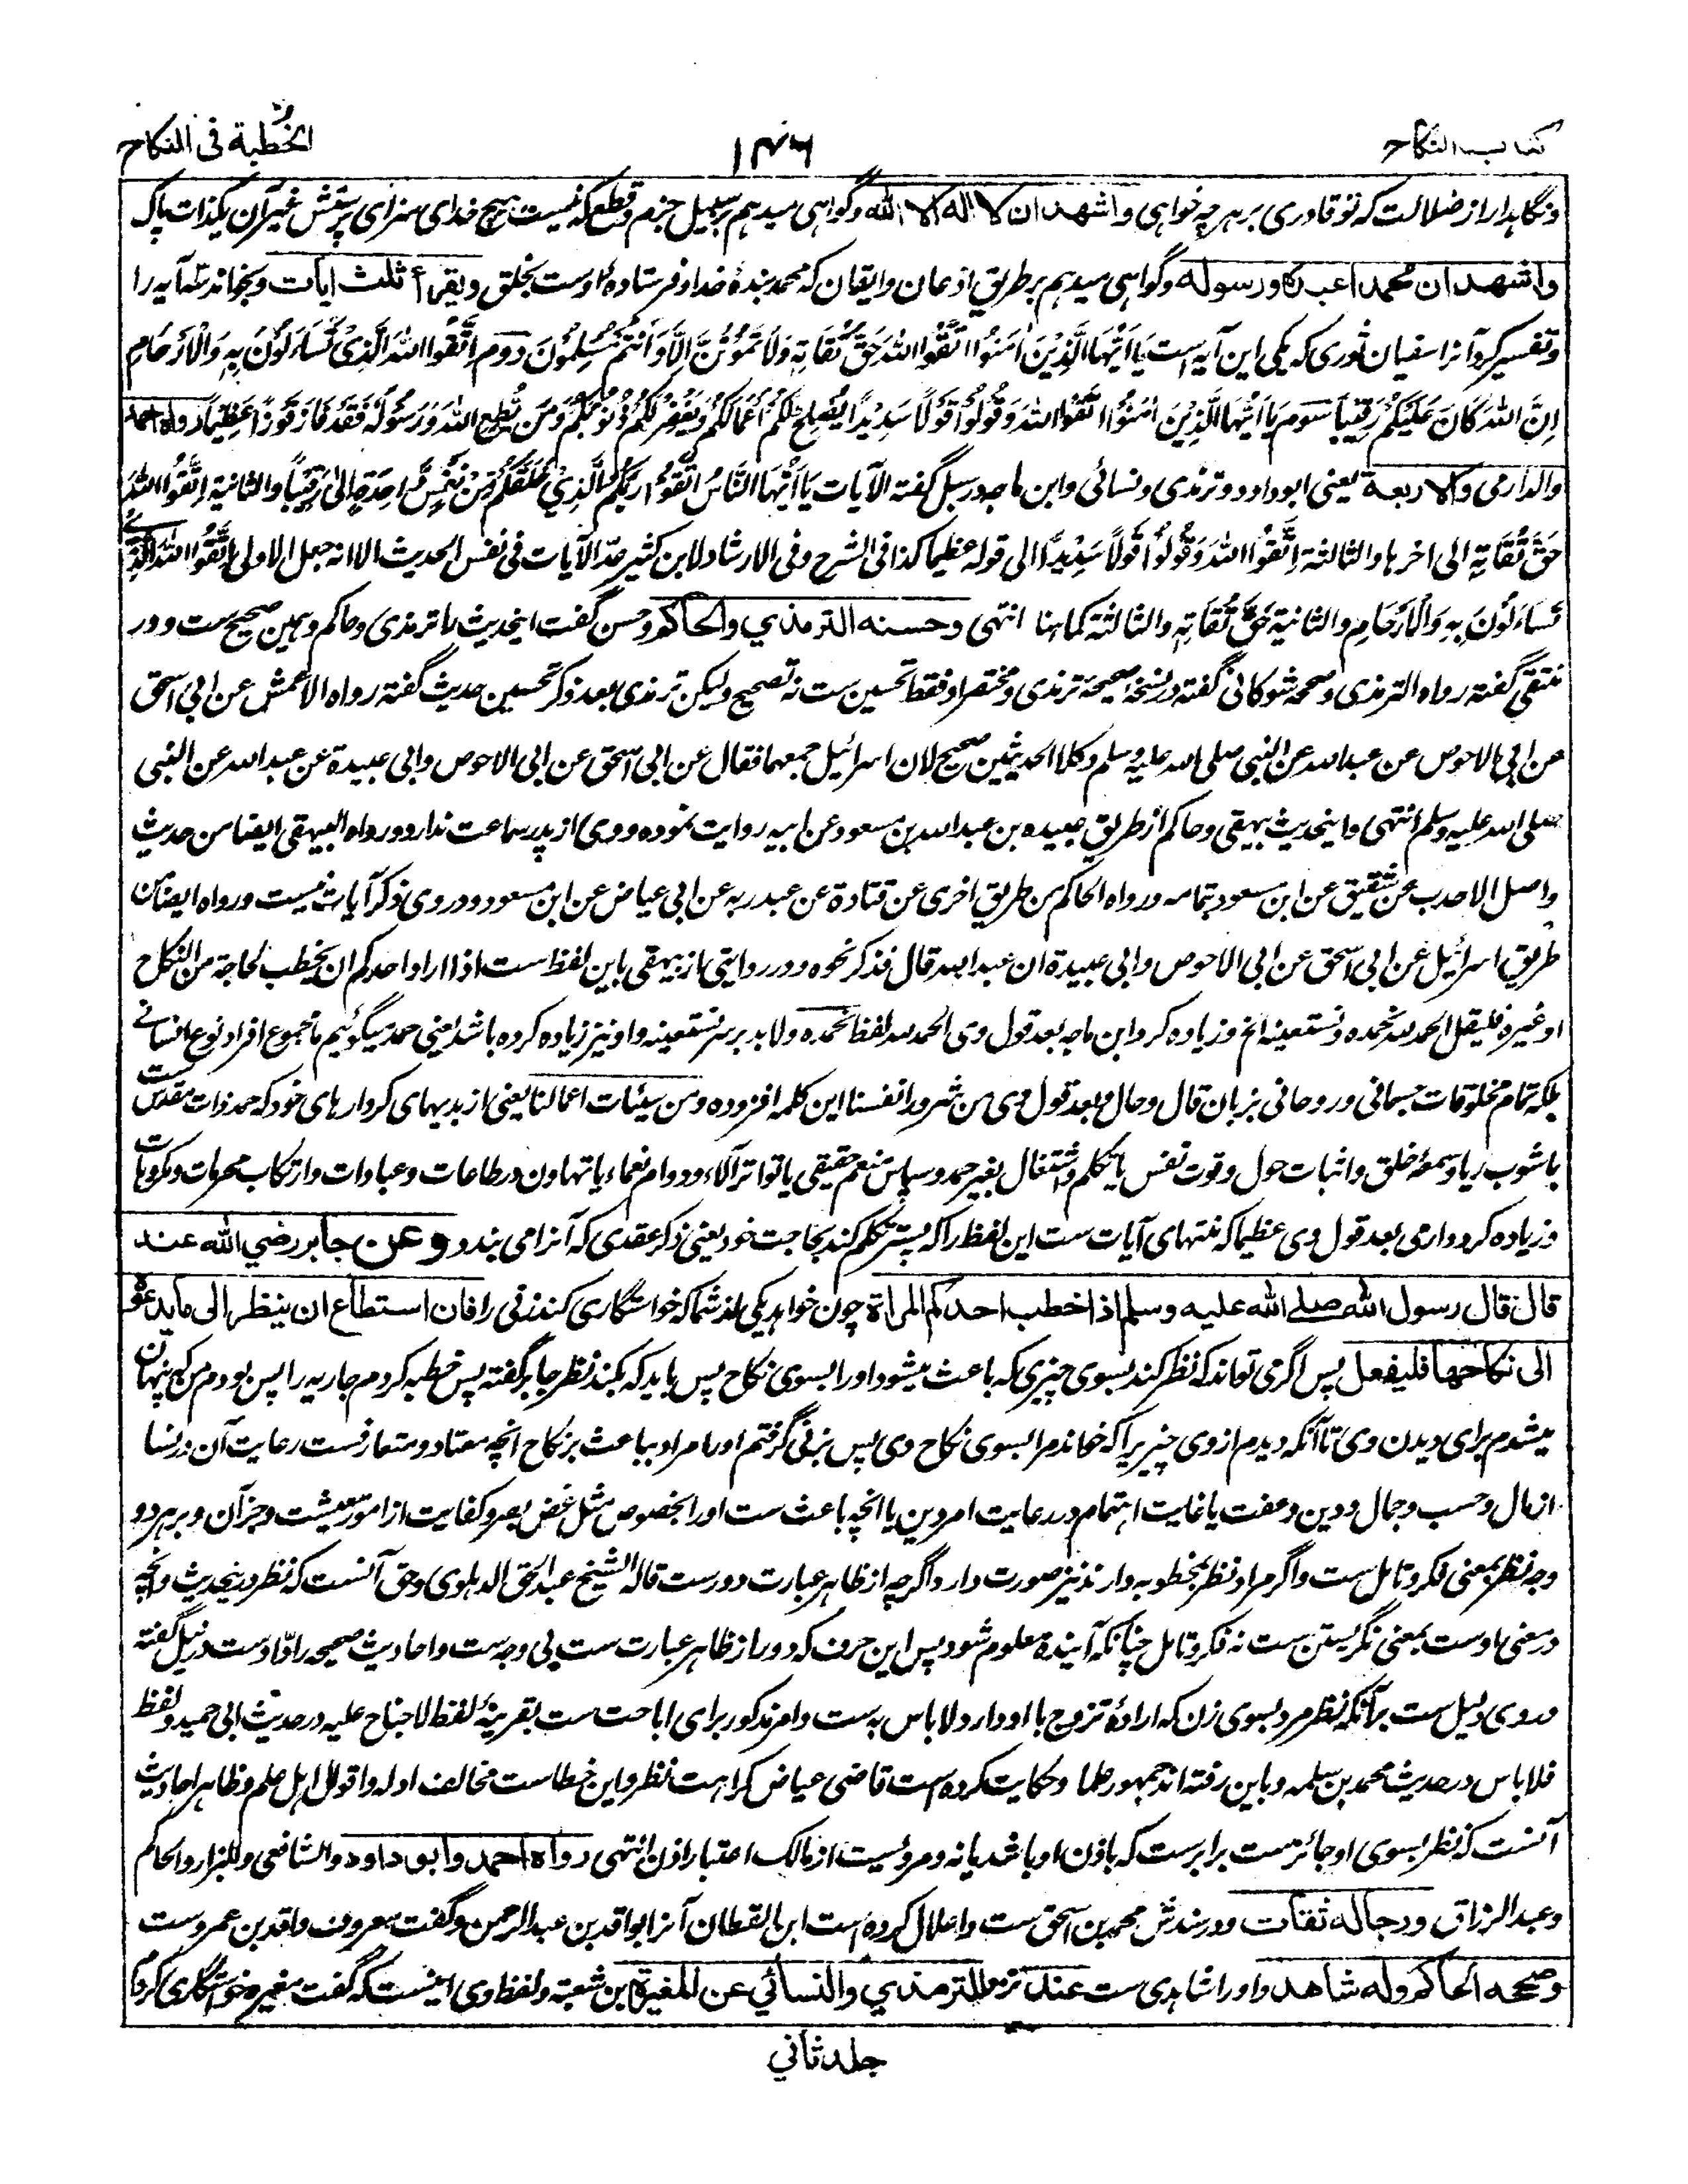 كتاب النكاح
١٣٦
الخطبة فى النكاح
ونگاہدار از ضلالت کہ تو قادری بر ہرچہ خواہی واشهد ان لا اله الا الله وگواہی میدہم بر سبیل جزم وقطع کہ نیست ہیچ خدای سزای پرستش غیر آن یکذات پاک
واشهد ان محمدا عبده ورسوله وگواہی میدہم بر طریق اذعان وایقان کہ محمد بندۂ خدا وفرستادہ اوست بخلق ويقرأ ثلث ايات وبخواند سہ آیہ را
وتفسیر کرد آنرا سفیان ثوری کہ یکی این آیہ است يَا أَيُّهَا الَّذِيْنَ اٰمَنُوا اتَّقُوا اللهَ حَقَّ تُقَاتِهٖ وَلَا تَمُوْتُنَّ اِلَّا وَاَنْتُمْ مُسْلِمُوْنَ دوم اِتَّقُوا اللهَ الَّذِىْ تَسَاءَلُوْنَ بِهٖ وَالْاَرْحَامِ
اِنَّ اللهَ كَانَ عَلَيْكُمْ رَقِيْبًا سوم يَا اَيُّهَا الَّذِيْنَ اٰمَنُوا اتَّقُوا اللهَ وَقُوْلُوْا قَوْلًا سَدِيْدًا يُصْلِحْ لَكُمْ اَعْمَالَكُمْ وَيَغْفِرْ لَكُمْ ذُنُوْبَكُمْ وَمَنْ يُطِعِ اللهَ وَرَسُوْلَهٗ فَقَدْ فَازَ فَوْزًا عَظِيْمًا رواه احمد
والدارمى والاربعة یعنی ابوداود وترمذی ونسائی وابن ماجہ ودر سبل گفتہ الآيات يَا اَيُّهَا النَّاسُ اتَّقُوْا رَبَّكُمُ الَّذِيْ خَلَقَكُمْ مِّنْ نَّفْسٍ وَّاحِدَةٍ الٰى رَقِيْبًا والثانية اِتَّقُوا اللهَ
حَقَّ تُقَاتِهٖ الى اخرها والثالثة اِتَّقُوا اللهَ وَقُوْلُوْا قَوْلًا سَدِيْدًا الى قوله عظيما كذا فى الشرح وفى الارشاد لابن كثير عدّ الآيات فى نفس الحديث الا انه جعل الاولى اِتَّقُوا اللهَ الَّذِيْ
تَسَاءَلُوْنَ بِهٖ وَالْاَرْحَامِ والثانية حَقَّ تُقَاتِهٖ والثالثة كما هنا انتهى وحسنه الترمذي والحاكم وحسن گفت اینحدیث را ترمذی وحاکم وہمین صحیح ست ودر
منتقی گفتہ رواه الترمذى وصححه شوکانی گفتہ در نسخہ صحیحہ ترمذی ومختصر او فقط تحسین ست نہ تصحیح ولیکن ترمذی بعد ذکر تحسین حدیث گفتہ رواه الاعمش عن ابي اسحق
عن ابي الاحوص عن عبد الله عن النبى صلى الله عليه وسلم وكلا الحديثين صحيح لان اسرائيل جمعهما فقال عن ابى اسحق عن ابى الاحوص وابى عبيدة عن عبد الله عن النبى
صلى الله عليه وسلم انتہی واینحدیث بیہقی وحاکم از طریق عبیدہ بن عبد اللہ بن مسعود عن ابیہ روایت نمودہ ووی از پدر سماعت ندارد ورواه البيهقى ايضا من حديث
واصل الاحدب عن شقيق عن ابن مسعود بتمامه ورواه الحاكم من طريق اخرى عن قتادة عن عبد ربه عن ابى عياض عن ابن مسعود ودر وی ذکر آیات نیست ورواه ايضا من
طريق اسرائيل عن ابى اسحق عن ابى الاحوص وابى عبيدة ان عبد الله قال فذكر نحوه ودر روایتی از بیہقی باین لفظ ست اذا اراد احدكم ان يخطب لحاجة من النكاح
او غيره فليقل الحمد لله نحمده ونستعينه الخ وزیادہ کرد ابن ماجہ بعد قول وی الحمد لله لفظ نحمده ولابد بر سر نستعينه واو نیز زیادہ کردہ باشد یعنی حمد میگوئیم ما مجموع افراد نوع انسانی
بلکہ تمام مخلوقات جسمانی وروحانی بزبان قال وحال وبعد قول وی من شرور انفسنا این کلمہ افزودہ ومن سيئات اعمالنا یعنی از بدیہای کردارہای خود کہ حمد ذات مقدس ست
باشوب ریا وسمعۂ خلق واثبات حول وقوت نفس یا تکلم واشتغال بغیر حمد وسپاس منعم حقیقی یا تواتر آلاء ودوام نعماء یا تہاون در طاعات وعبادات وارتکاب محرمات ومکروہات
وزیادہ کرد دارمی بعد قول وی عظیما کہ منتہای آیات ست این لفظ را کہ پستر تکلم کند بحاجت خود یعنی ذکر عقدی کہ آنرا می بندد وعن جابر رضي الله عنه
قال قال رسول الله صلے الله عليه وسلم اذا خطب احدكم المراة چون خواہد یکی از شما کہ خواستگاری کند زنی را فان استطاع ان ينظر الى ما يدعوه
الى نكاحها فليفعل پس اگر می تواند کہ نظر کند بسوی چیزی کہ باعث میشود او را بسوی نکاح پس باید کہ بکند نظر جابر گفتہ پس خطبہ کردم جاریہ را پس بودم من کہ پنہان
میشدم برای دیدن وی تا آنکہ دیدم از وی چیزیرا کہ خواند مرا بسوی نکاح وی پس بزنی گرفتم او را مراد بباعث بر نکاح انچہ معتاد ومتعارفست رعایت آن در نسا
از مال وحسب وجمال ودین وعفت یا غایت اہتمام در رعایت امر دین یا انچہ باعث ست او را بخصوص مثل غض بصر وکفایت از امور معیشت وجز آن وبر ہر دو
وجہ نظر بمعنی فکر وتامل ست واگر مراد نظر بمخطوبہ دارند نیز صورت دارد اگرچہ از ظاہر عبارت دورست قالہ الشیخ عبد الحق الدہلوی وحق آنست کہ نظر درینحدیث وانچہ
در معنی اوست بمعنی نگریستن ست نہ فکر وتامل چنانکہ آیندہ معلوم شود پس این حرف کہ دور از ظاہر عبارت ست بی وجہ ست واحادیث صحیحہ رادّ اوست در نیل گفتہ
در وی دلیل ست بر آنکہ نظر مرد بسوی زن کہ ارادۂ تزوج با او دارد لا باس بہ ست وامر مذکور برای اباحت ست بقرینۂ لفظ لا جناح عليه در حدیث ابی حمید ولفظ
فلا باس در حدیث محمد بن سلمہ وباین رفتہ اند جمہور علما وحکایت کردہ است قاضی عیاض کراہت نظر واین خطاست مخالف ادلہ واقوال اہل علم وظاہر احادیث
آنست کہ نظر بسوی او جائزست برابرست کہ باذن او باشد یا نہ ومرویست از مالک اعتبار اذن انتہی رواه احمد وابو داود والشافعی والبزار والحاکم
وعبد الرزاق ورجاله ثقات ودر سندش محمد بن اسحق ست واعلال کردہ است ابن القطان آنرا بواقد بن عبد الرحمن وگفت معروف واقد بن عمروست
وصححه الحاكم وله شاهد واو را شاہدی ست عند نزد الترمذي والنسائي عن المغيرة بن شعبة ولفظ وی اینست کہ گفت مغیرہ خواستگاری کردم
جلد ثاني